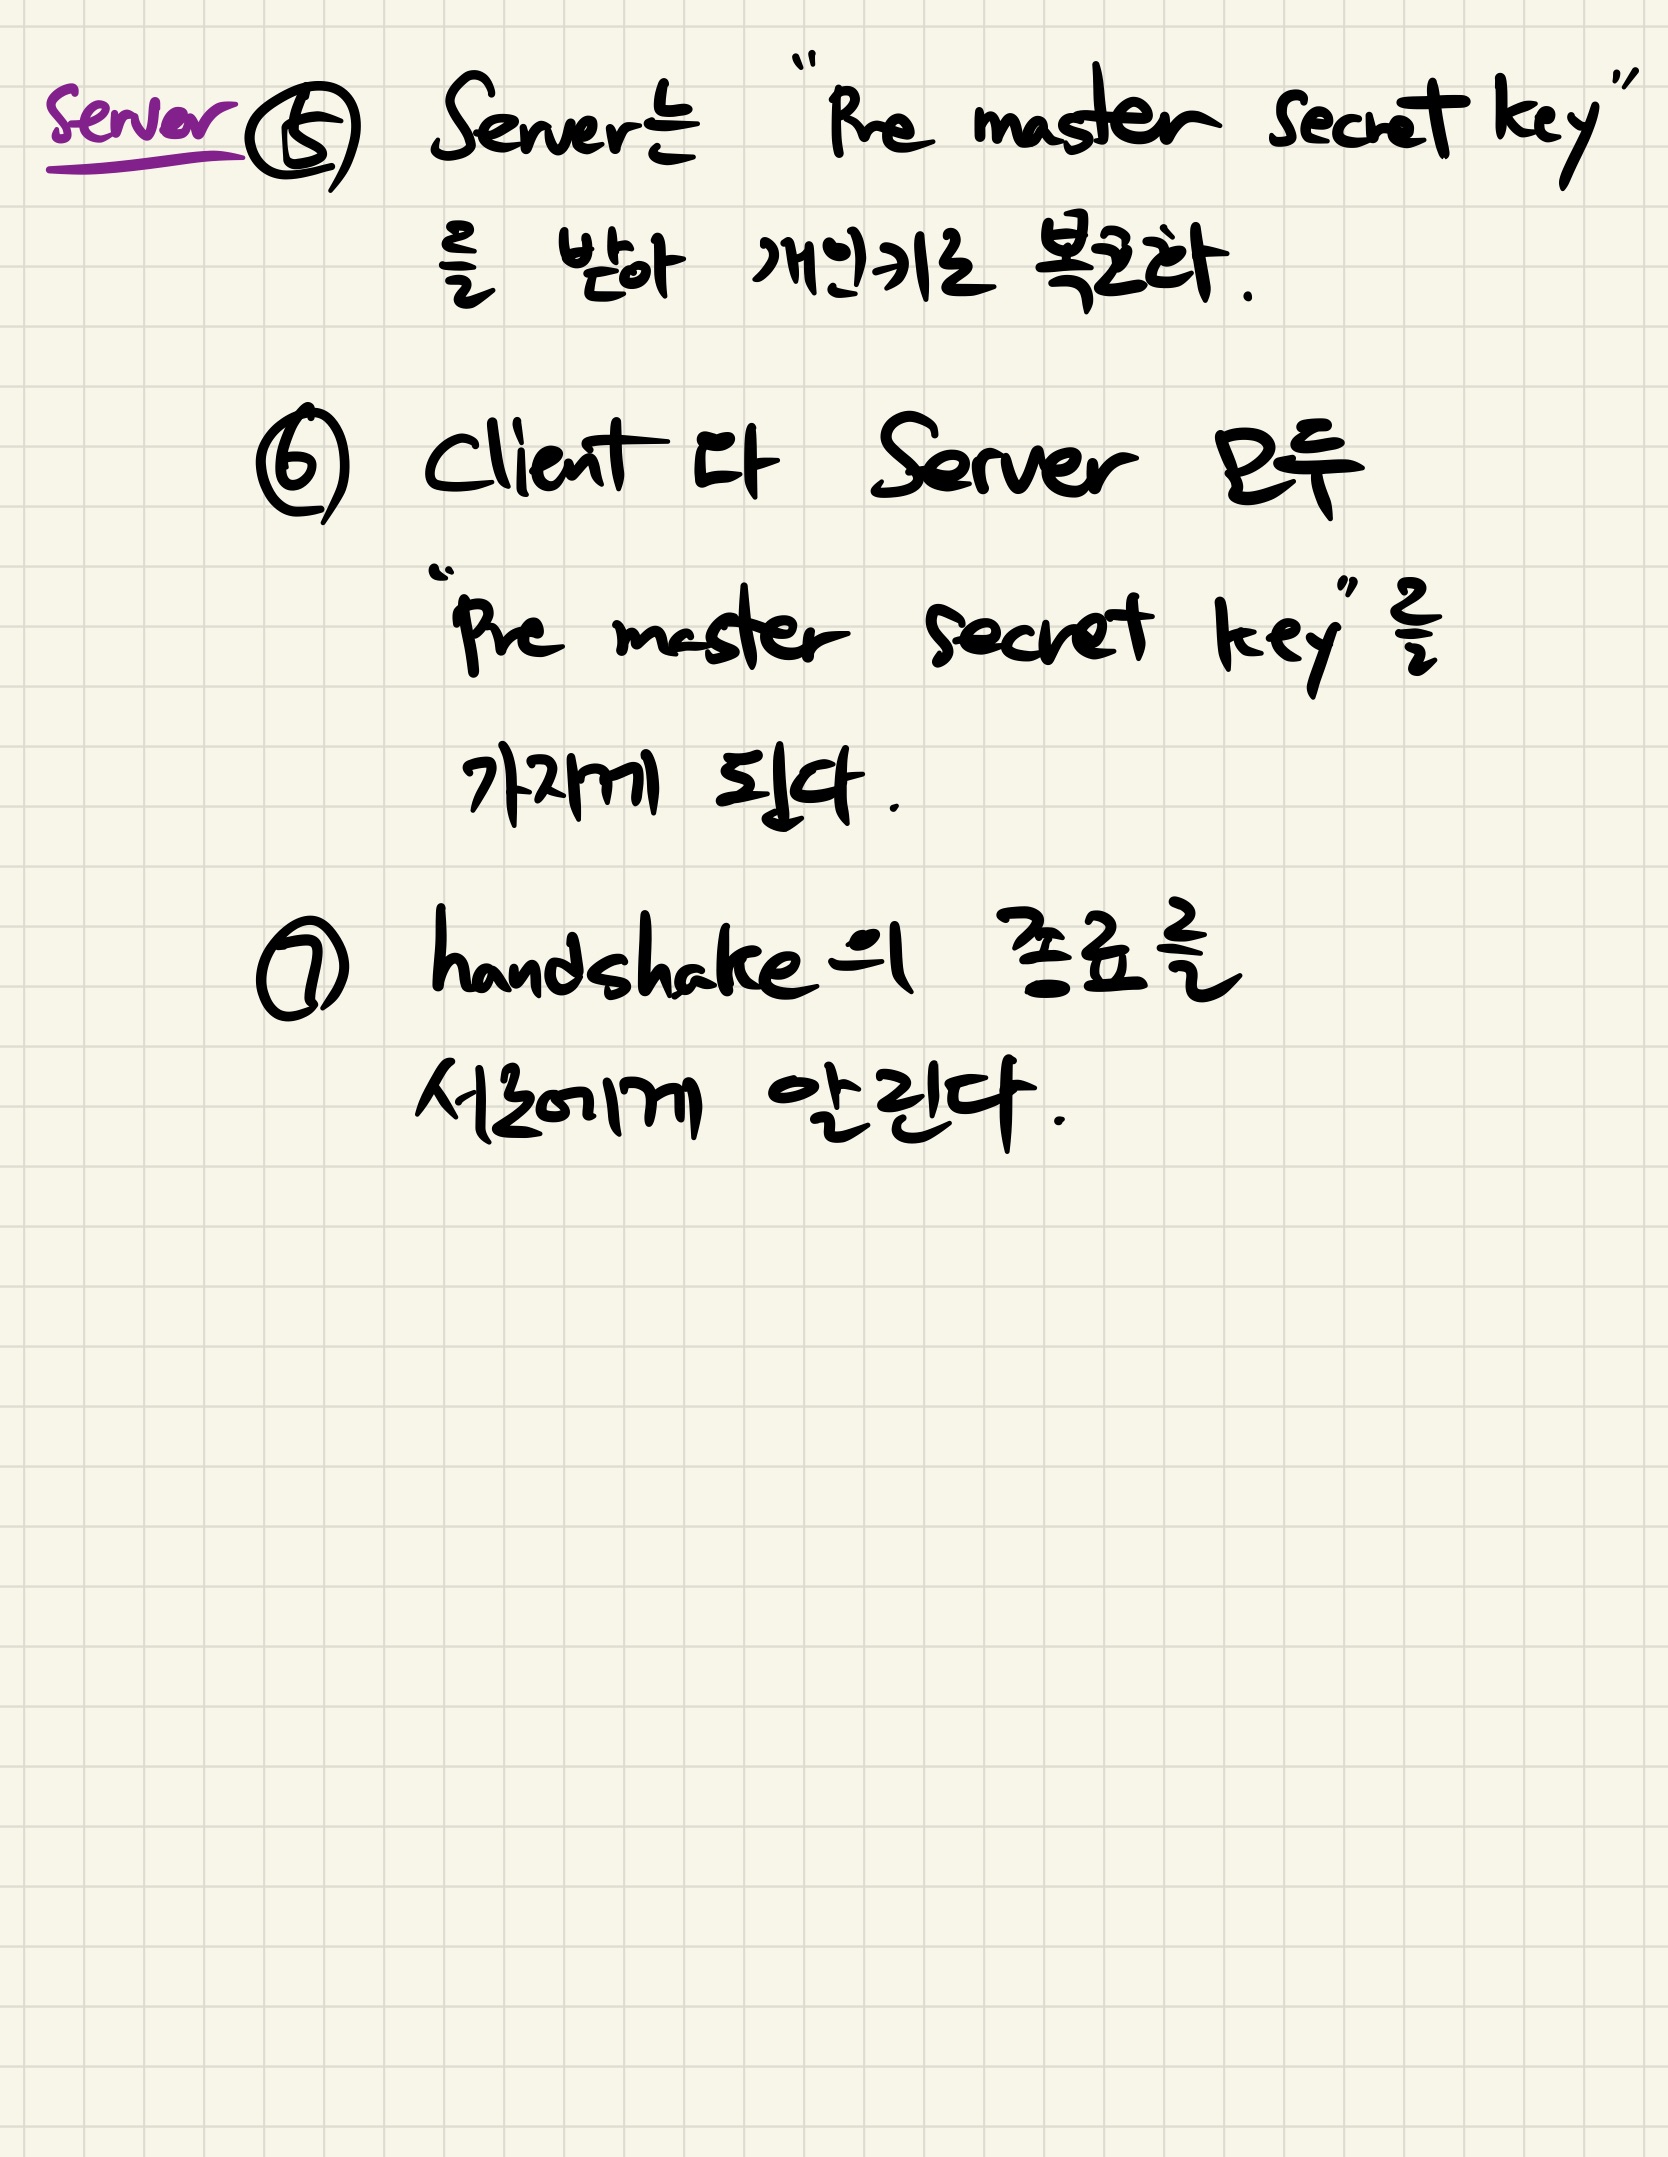 Server ⑤ Server는 "Pre master secret key"
를 받아 개인키로 복호화.
⑥ Client 다 Server 모두
"Pre master secret key"를
가지게 된다.
⑦ handshake의 종료를
서로에게 알린다.